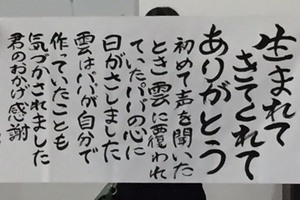 生まれて
きてくれて
ありがとう
初めて声を聞いた
とき雲に覆われ
ていたパパの心に
日がさしました
雲はパパが自分で
作っていたことも
気づかされました
君のおかげ感謝